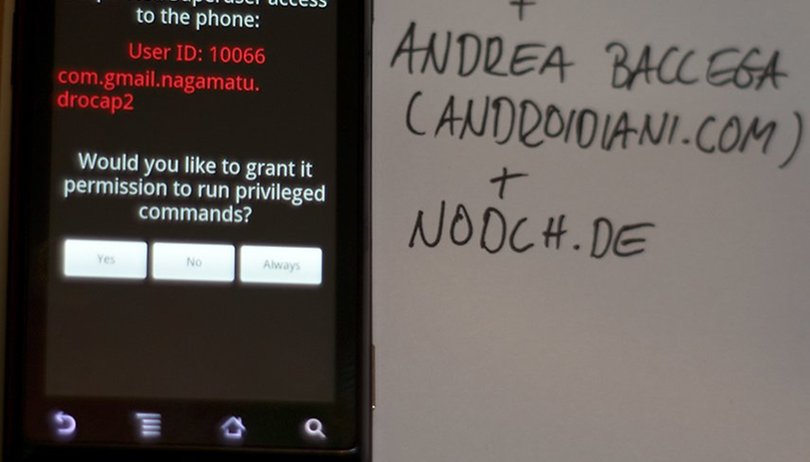 superuser access
to the phone:
User ID: 10066
com.gmail.nagamatu.
drocap2
Would you like to grant it
permission to run privileged
commands?
Yes No Always
+
ANDREA BACCEGA
(ANDROIDIANI.COM)
+
NOOCH.DE